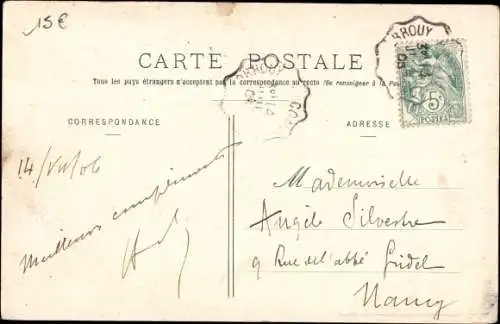 15€
CARTE POSTALE
Tous les pays étrangers n'acceptent pas la correspondance au recto (Se renseigner à la
CORRESPONDANCE
ADRESSE
ARROUY
5c
POSTES
14/VII/06
Meilleurs compliments
Mademoiselle
Angèle Silvestre
9 Rue de l'abbé Gridel
Nancy